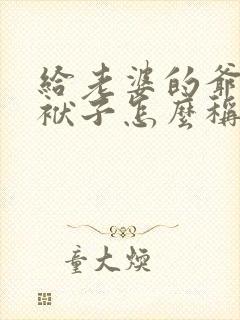 給老婆的爺
袱子怎麼稱
童大煥